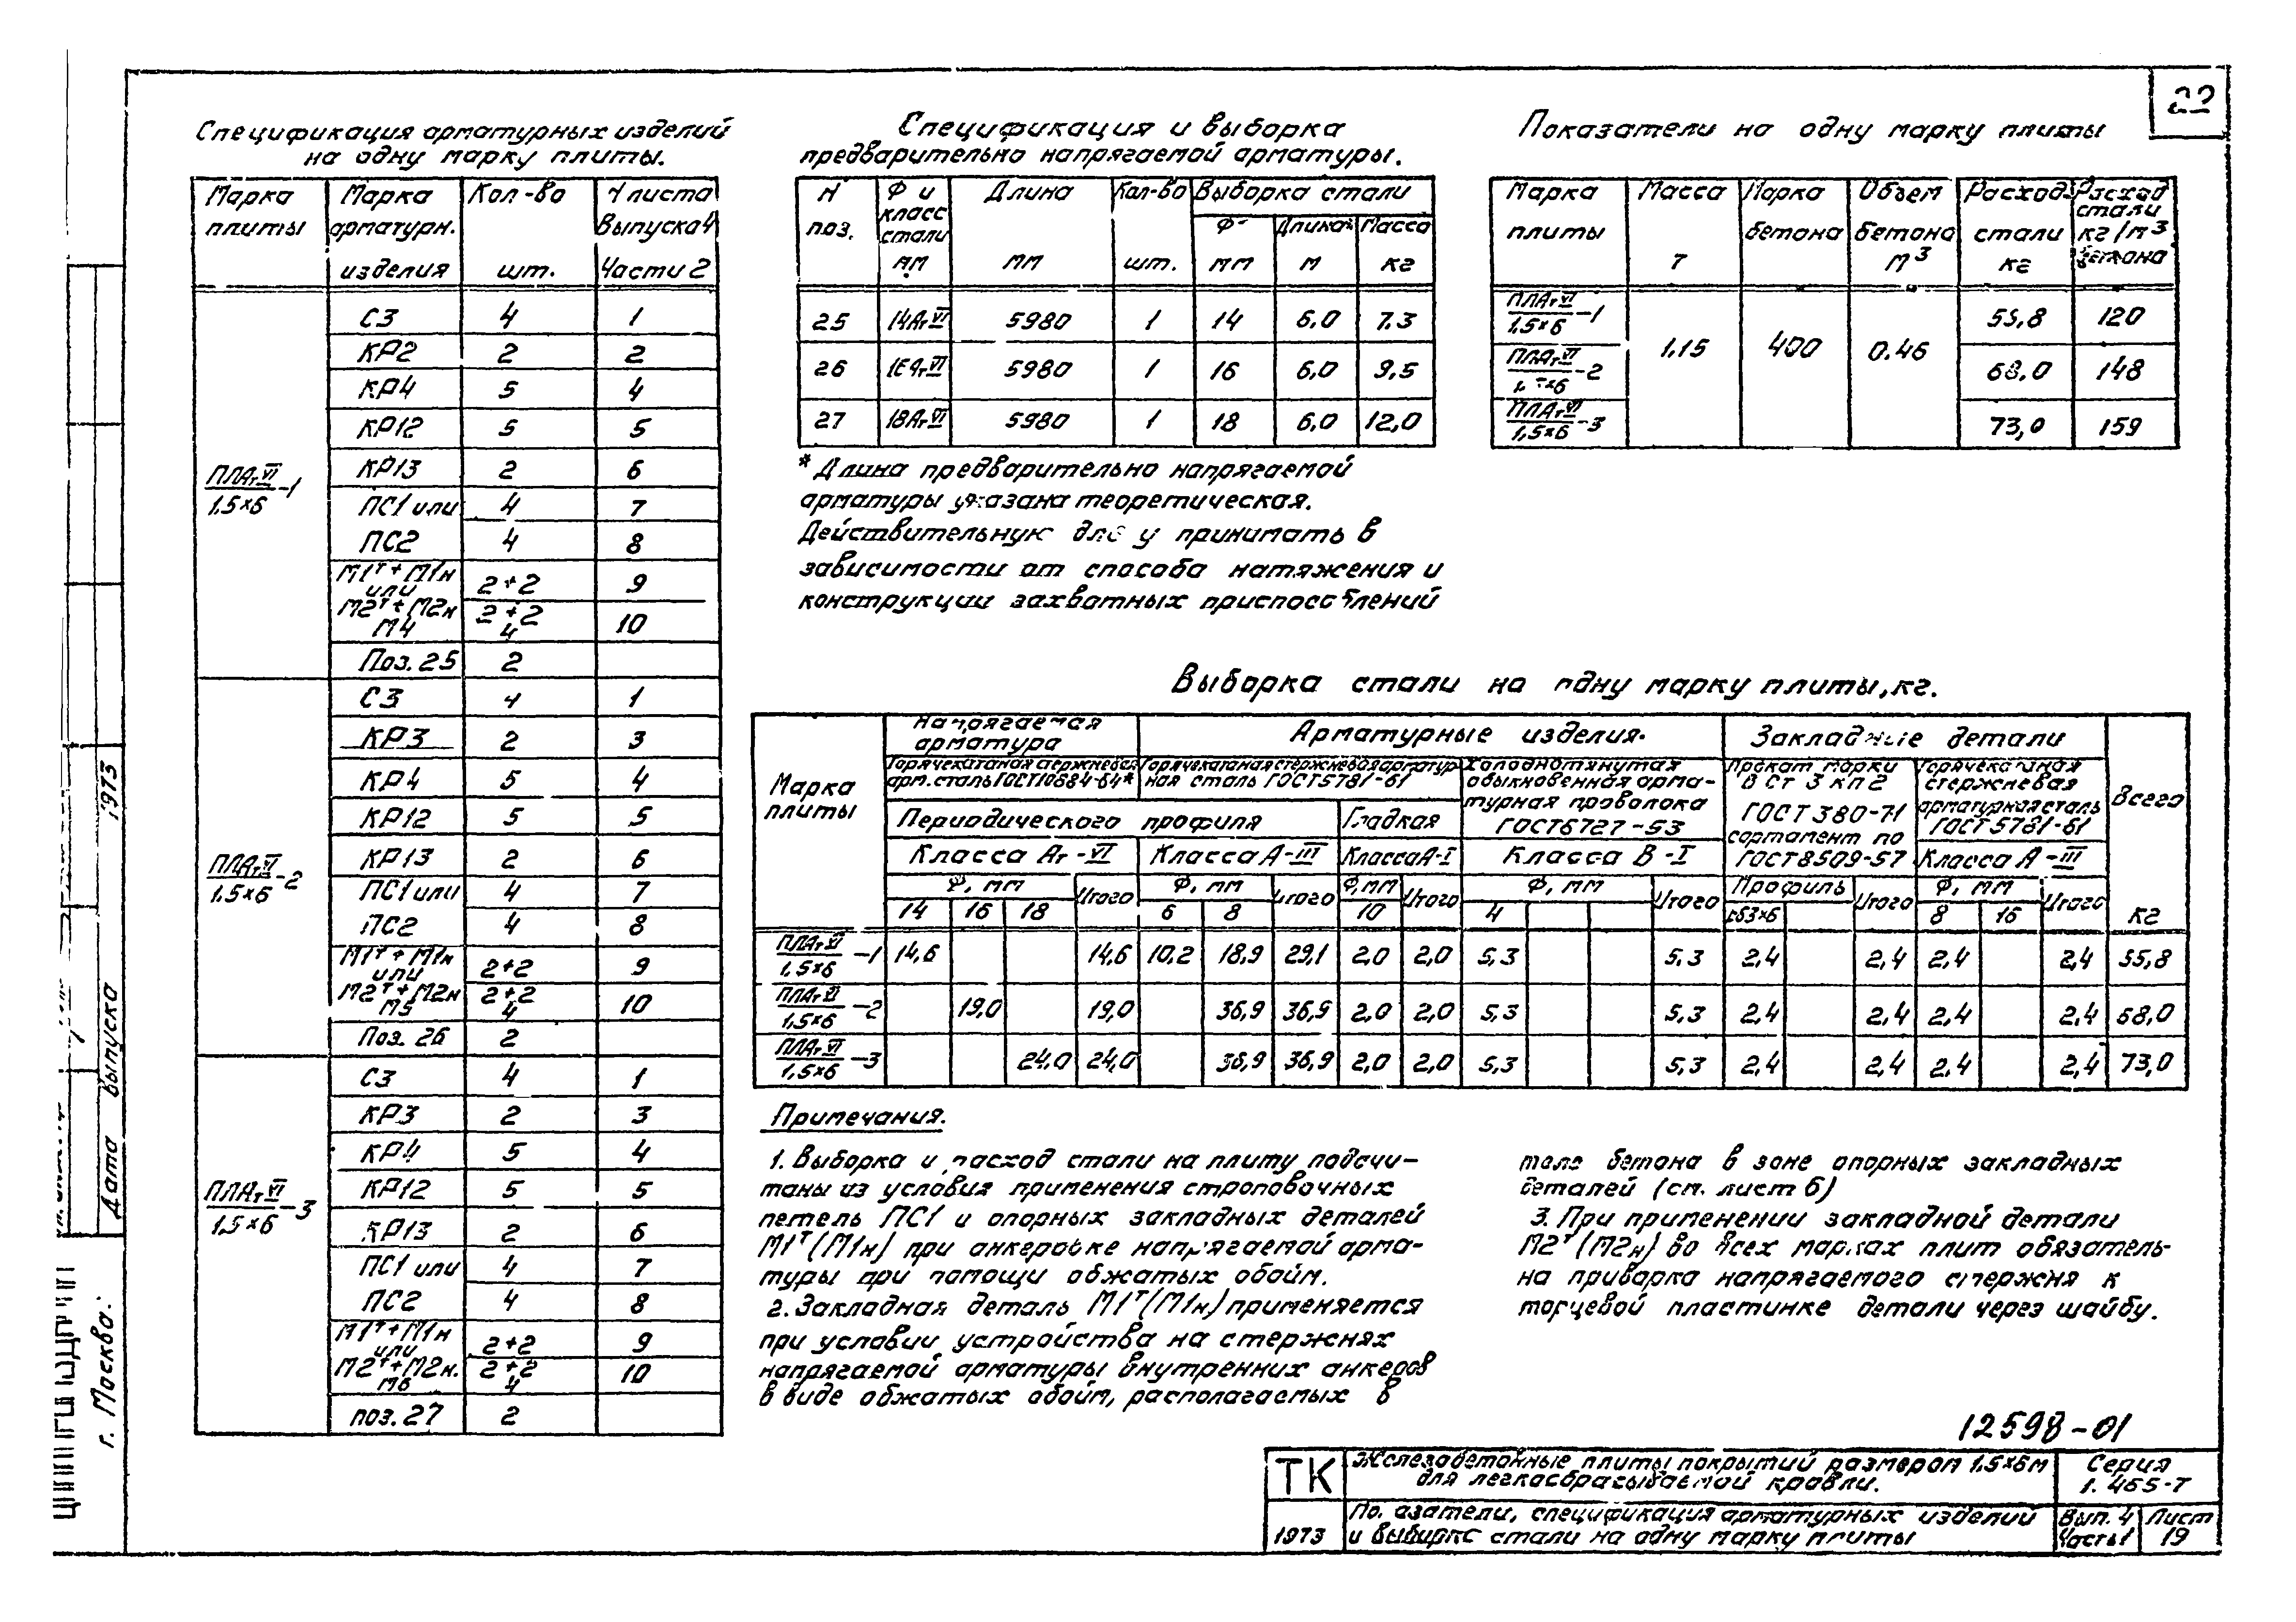 22
Спецификация арматурных изделий
на одну марку плиты.
Марка плиты | Марка арматурн. изделия | Кол-во шт. | N листа Выпуска 4 Части 2
ПЛАтVI/1,5×6-1
С3 4 1
КР2 2 2
КР4 5 4
КР12 5 5
КР13 2 6
ПС1 или 4 7
ПС2 4 8
М1т+М1н 2+2 9
или
М2т+М2н 2+2
М4 4 10
Поз. 25 2
ПЛАтVI/1,5×6-2
С3 4 1
КР3 2 3
КР4 5 4
КР12 5 5
КР13 2 6
ПС1 или 4 7
ПС2 4 8
М1т+М1н 2+2 9
или
М2т+М2н 2+2
М5 4 10
Поз. 26 2
ПЛАтVI/1,5×6-3
С3 4 1
КР3 2 3
КР4 5 4
КР12 5 5
КР13 2 6
ПС1 или 4 7
ПС2 4 8
М1т+М1н 2+2 9
или
М2т+М2н. 2+2
М6 4 10
поз. 27 2
Спецификация и выборка
предварительно напрягаемой арматуры.
N поз. | Ф и класс стали мм | Длина мм | Кол-во шт. | Выборка стали
Ф мм | Длина* м | Масса кг
25 14АтVI 5980 1 14 6.0 7.3
26 16АтVI 5980 1 16 6,0 9,5
27 18АтVI 5980 1 18 6,0 12,0
* Длина предварительно напрягаемой
арматуры указана теоретическая.
Действительную у принимать в
зависимости от способа натяжения и
конструкции захватных приспособлений
Показатели на одну марку плиты
Марка плиты | Масса т | Марка бетона | Объем бетона м³ | Расход стали кг | Расход стали кг/м³ бетона
ПЛАтVI/1,5×6-1 1.15 400 0.46 55,8 120
ПЛАтVI/1,5×6-2 68.0 148
ПЛАтVI/1,5×6-3 73,0 159
Выборка стали на одну марку плиты, кг.
Марка плиты | Напрягаемая арматура | Арматурные изделия. | Закладные детали | Всего кг
Горячекатаная стержневая арм. сталь ГОСТ10884-64* | Горячекатаная стержневая арматурная сталь ГОСТ5781-61 | Холоднотянутая обыкновенная арматурная проволока ГОСТ6727-53 | Прокат марки В Ст 3 кп2 ГОСТ 380-71 сортамент по ГОСТ8509-57 | Горячекатаная стержневая арматурная сталь ГОСТ5781-61
Периодического профиля | Гладкая
Класса Ат-VI | Класса А-III | Класса А-I | Класса В-I | Класса А-III
Ф, мм | Итого | Ф, мм | Итого | Ф, мм | Итого | Ф, мм | Итого | Профиль | Итого | Ф, мм | Итого
14 16 18 6 8 10 4 L63×6 8 16
ПЛАтVI/1,5×6-1 14,6 14,6 10,2 18,9 29,1 2,0 2,0 5,3 5,3 2,4 2,4 2,4 2,4 55,8
ПЛАтVI/1,5×6-2 19,0 19,0 36,9 36,9 2,0 2,0 5,3 5,3 2,4 2,4 2,4 2,4 68,0
ПЛАтVI/1,5×6-3 24,0 24,0 36,9 36,9 2,0 2,0 5,3 5,3 2,4 2,4 2,4 2,4 73,0
Примечания.
1. Выборка и расход стали на плиту подсчи-
таны из условия применения строповочных
петель ПС1 и опорных закладных деталей
М1т(М1н) при анкеровке напрягаемой арма-
туры при помощи обжатых обойм.
2. Закладная деталь М1т(М1н) применяется
при условии устройства на стержнях
напрягаемой арматуры внутренних анкеров
в виде обжатых обойм, располагаемых в
теле бетона в зоне опорных закладных
деталей (см. лист 6)
3. При применении закладной детали
М2т(М2н) во всех марках плит обязатель-
на приварка напрягаемого стержня к
торцевой пластинке детали через шайбу.
12598-01
ТК
1973
Железобетонные плиты покрытий размером 1.5×6м
для легкосбрасываемой кровли.
Серия
1.465-7
Показатели, спецификация арматурных изделий
и выборка стали на одну марку плиты
Вып. 4
Часть 1
Лист
19
Дата выпуска 1973
г. Москва.